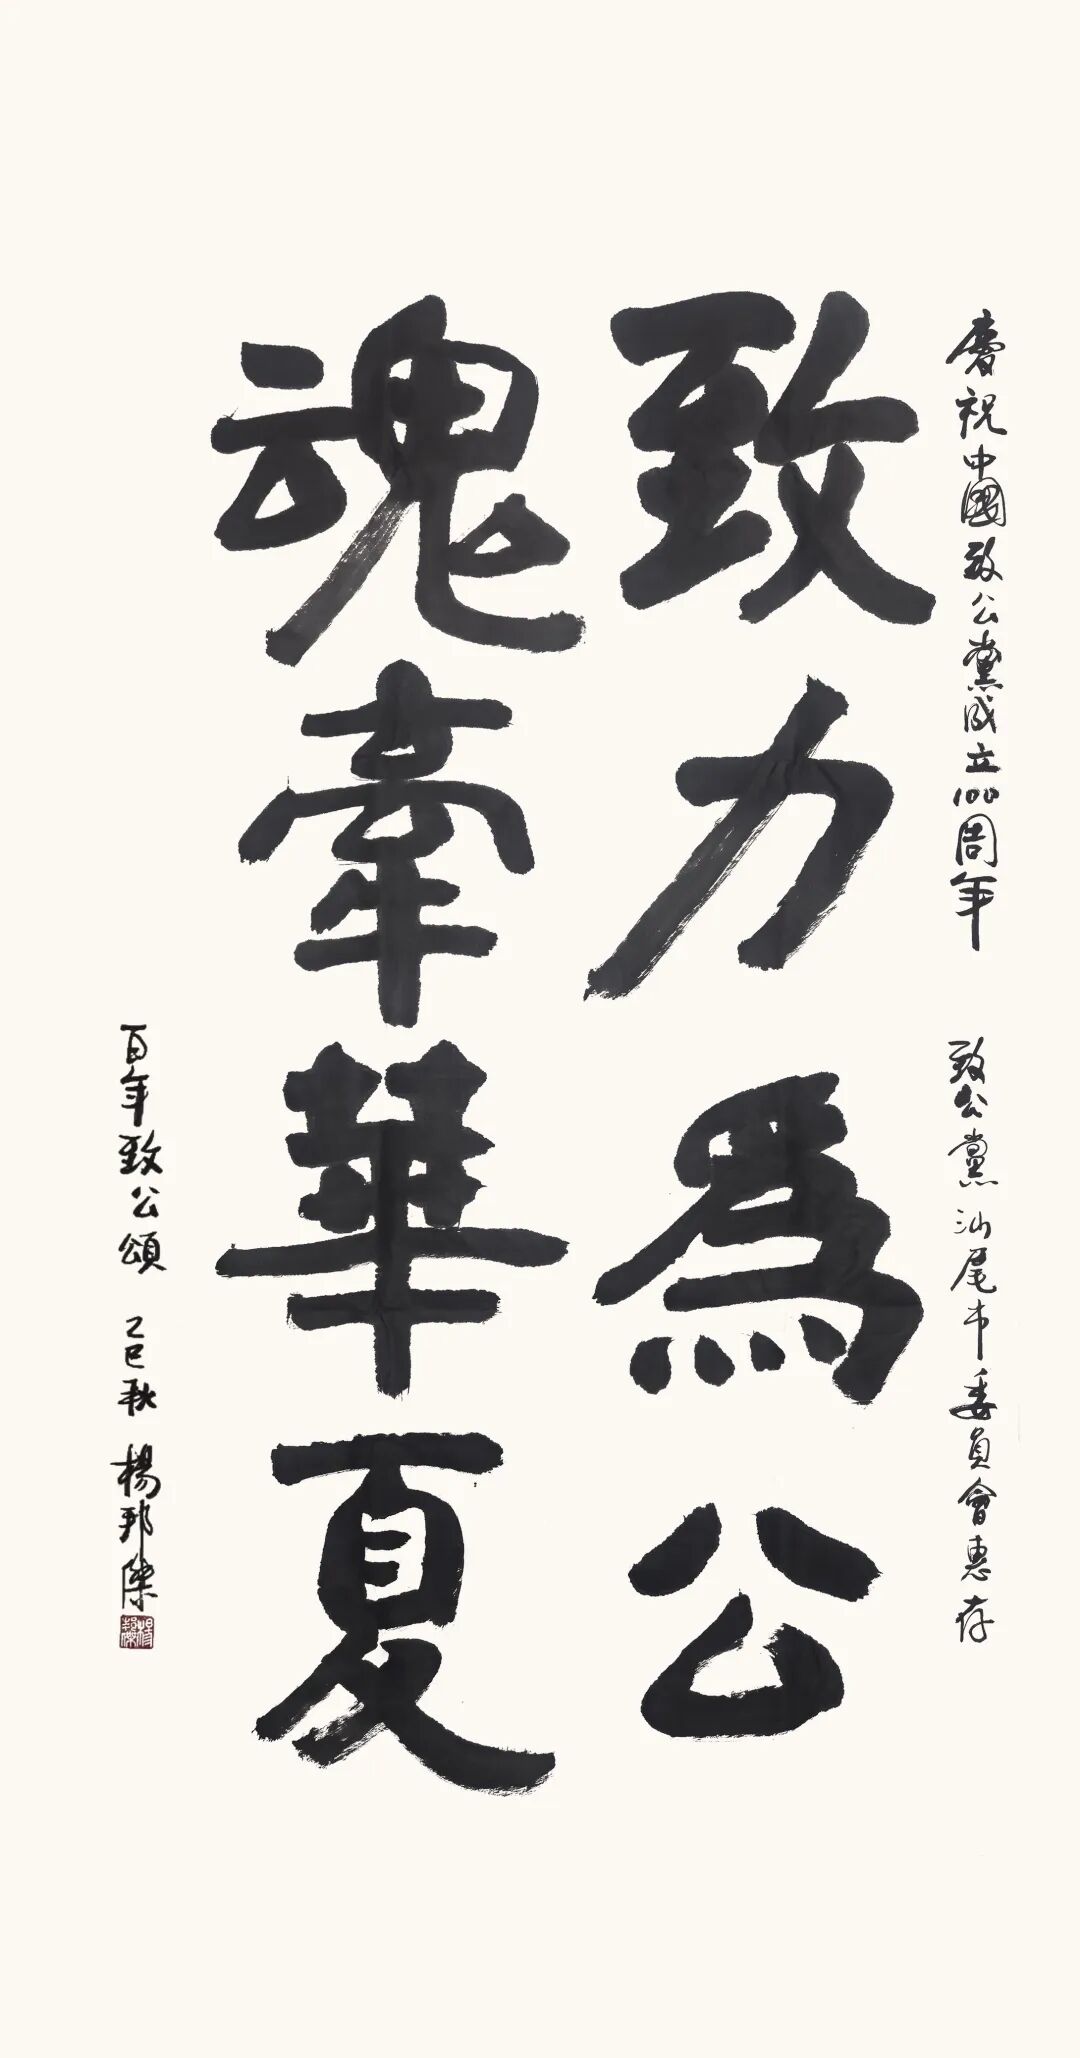 慶祝中國致公黨成立100周年
致公黨汕尾市委員會惠存
致力為公
魂牽華夏
百年致公頌 乙巳秋 楊邦傑